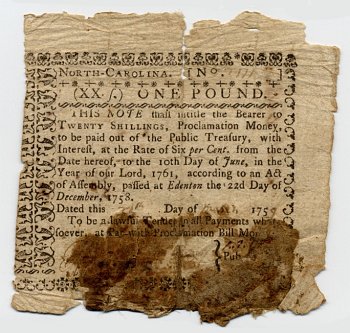 NORTH-CAROLINA. [No.
(XX s) ONE POUND.
THIS NOTE shall intitle the Bearer to
TWENTY SHILLINGS, Proclamation Money,
to be paid out of the Public Treasury, with
Interest, at the Rate of Six per Cent. from the
Date hereof, to the 10th Day of June, in the
Year of our Lord, 1761, according to an Act
of Assembly, passed at Edenton the 22d Day of
December, 1758.
Dated this Day of 175
To be a lawful Tender in all Payments what
soever, at Par with Proclamation Bill Mo
Pub